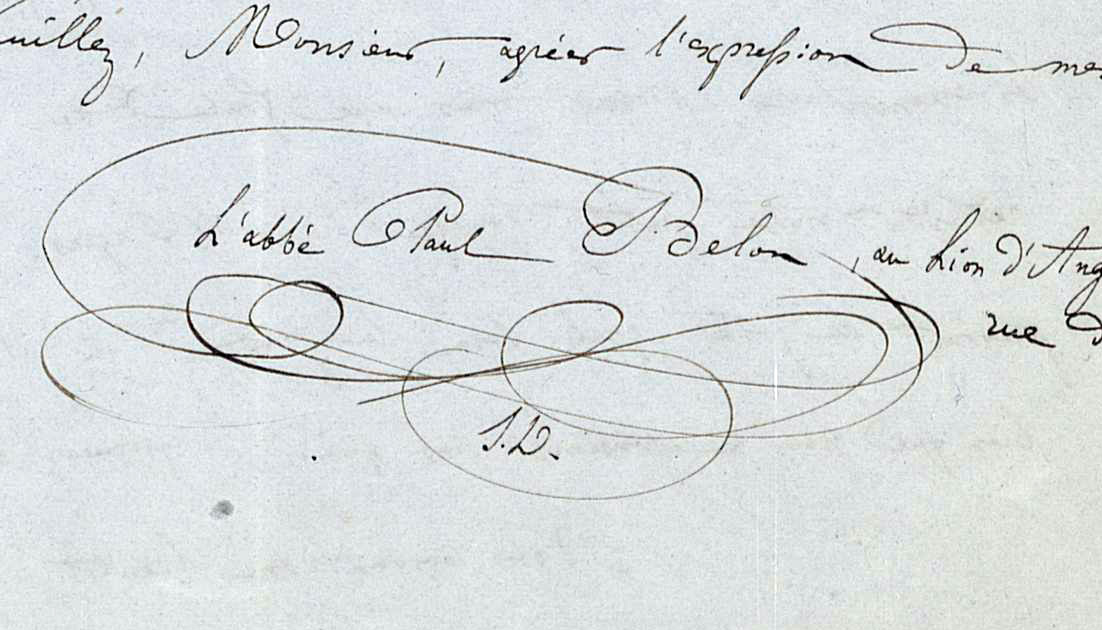 uillez, Monsieur, agréer l'expression de mes
L'abbé Paul Belon, au Lion d'Ang
rue d
S.D.